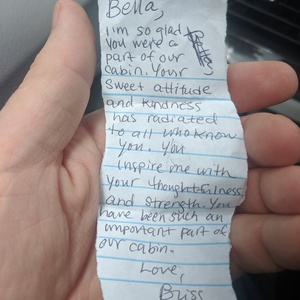 Bella,
I'm so glad
you were a
part of our
cabin. Your
sweet attitude
and kindness
has radiated
to all who know
you. You
inspire me with
your thoughtfulness
and strength. You
have been such an
important part of
our cabin.
Love,
Bliss